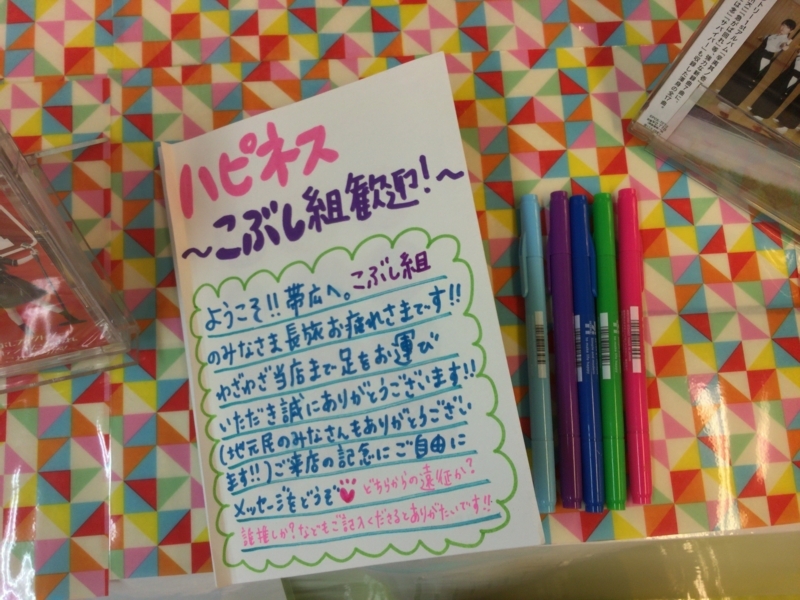 ハピネス
～こぶし組歓迎!～
ようこそ!!帯広へ。こぶし組
のみなさま長旅お疲れさまです!!
わざわざ当店まで足をお運び
いただき誠にありがとうございます!!
(地元民のみなさんもありがとうござい
ます!!)ご来店の記念にご自由に
メッセージをどうぞ♥どちらからの遠征か?
誰推しか?などもご記入くださるとありがたいです!!